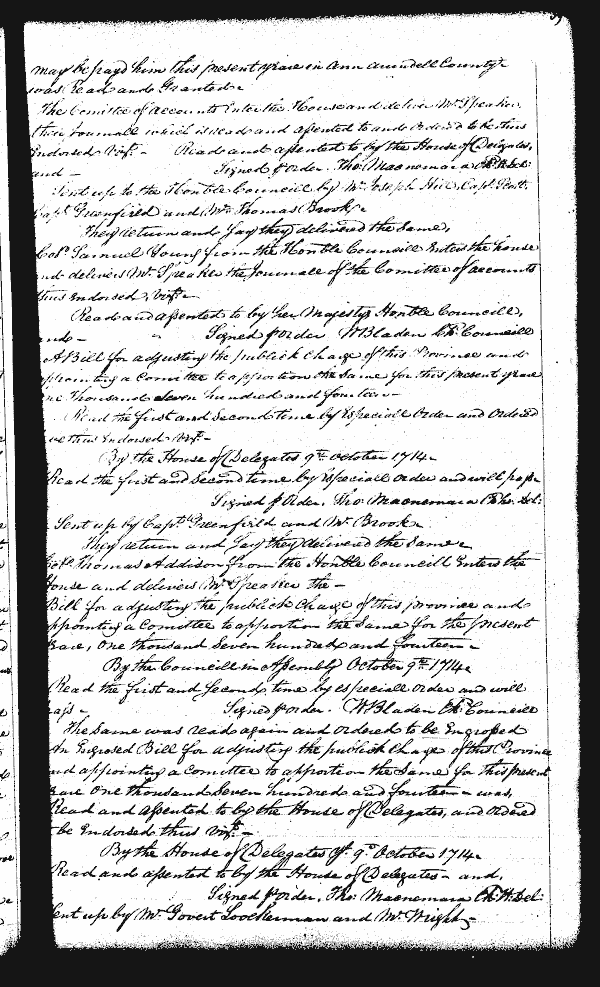 may be payd him this present yeare in Ann Arundell County
was Read and Granted
The Comittee of accounts Enter the House and deliver Mr Speaker
their Journall which is read and assented to and ordered to be thus
Endorsed Vizt. - Read and assented to by the House of Delegates,
and - Signed p order. Tho: Macnemara Ck H: Del:
Sent up to the Honble Councill by Mr Joseph Hill, Capt. Scott.
Capt. Greenfield and Mr Thomas Brook.
They return and say they delivered the Same,
Col. Samuel Young from the Honble Councill Enters the house
and delivers Mr Speaker the Journall of the Comittee of accounts
thus Endorsed, Vizt. -
Read and assented to by her Majestys Honble Councill,
and - Signed p order WBladen Ck Councill
A Bill for adjusting the publick Charge of this Province and
appointing a Comittee to apportion the Same for this present yeare
one Thousand seven hundred and fourteen -
Read the first and second time by Especiall order and ordered
be thus Endorsed Vizt. -
By the House of Delegates 9th October 1714.
Read the first and Second time by Especiall order and will pass
Signed p Order. Tho: Macnemara Ck Ho. Del:
Sent up by Capt Greenfield and Mr Brook
They return and Say they delivered the Same
Col. Thomas Addison from the Honble Councill Enters the
House and delivers Mr Speaker the -
Bill for adjusting the publick Charge of this province and
appointing a Comittee to apportion the Same for the present
Yeare, One thousand Seven hundred and fourteen -
By the Councill in Assembly October 9th 1714.
Read the first and Second time by especiall order and will
pass - Signed p order. WBladen Ck Councill
The Same was read again and ordered to be Engrossed
An Engrosed Bill for adjusting the publick Charge of this Province
and appointing a Comittee to apportion the Same for this present
Yeare One thousand Seven hundred and fourteen - was,
Read and assented to by the House of Delegates, and ordered
be Endorsed thus Vizt. -
By the House of Delegates 9. October 1714.
Read and assented to by the House of Delegates - and,
Signed p order, Tho: Macnemara Ck H. Del:
Sent up by Mr Govert Loockerman and Mr Wright -